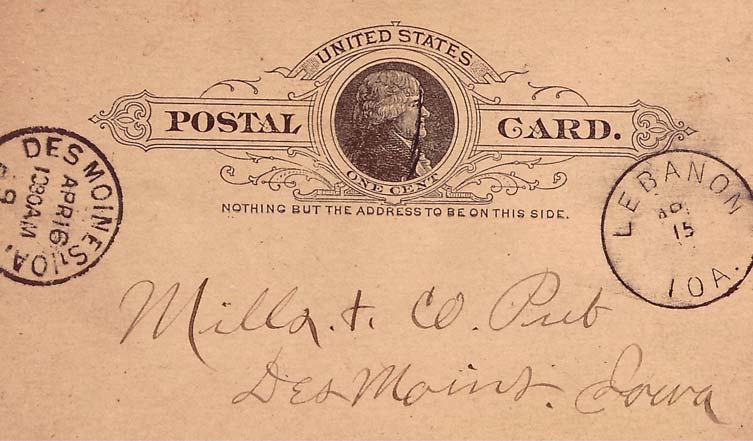 UNITED STATES
POSTAL CARD.
ONE CENT
NOTHING BUT THE ADDRESS TO BE ON THIS SIDE.
DES MOINES, IOA.
APR 16
1030AM
LEBANON
15
IOA.
Mills. & Co. Pub
Des Moins. Iowa